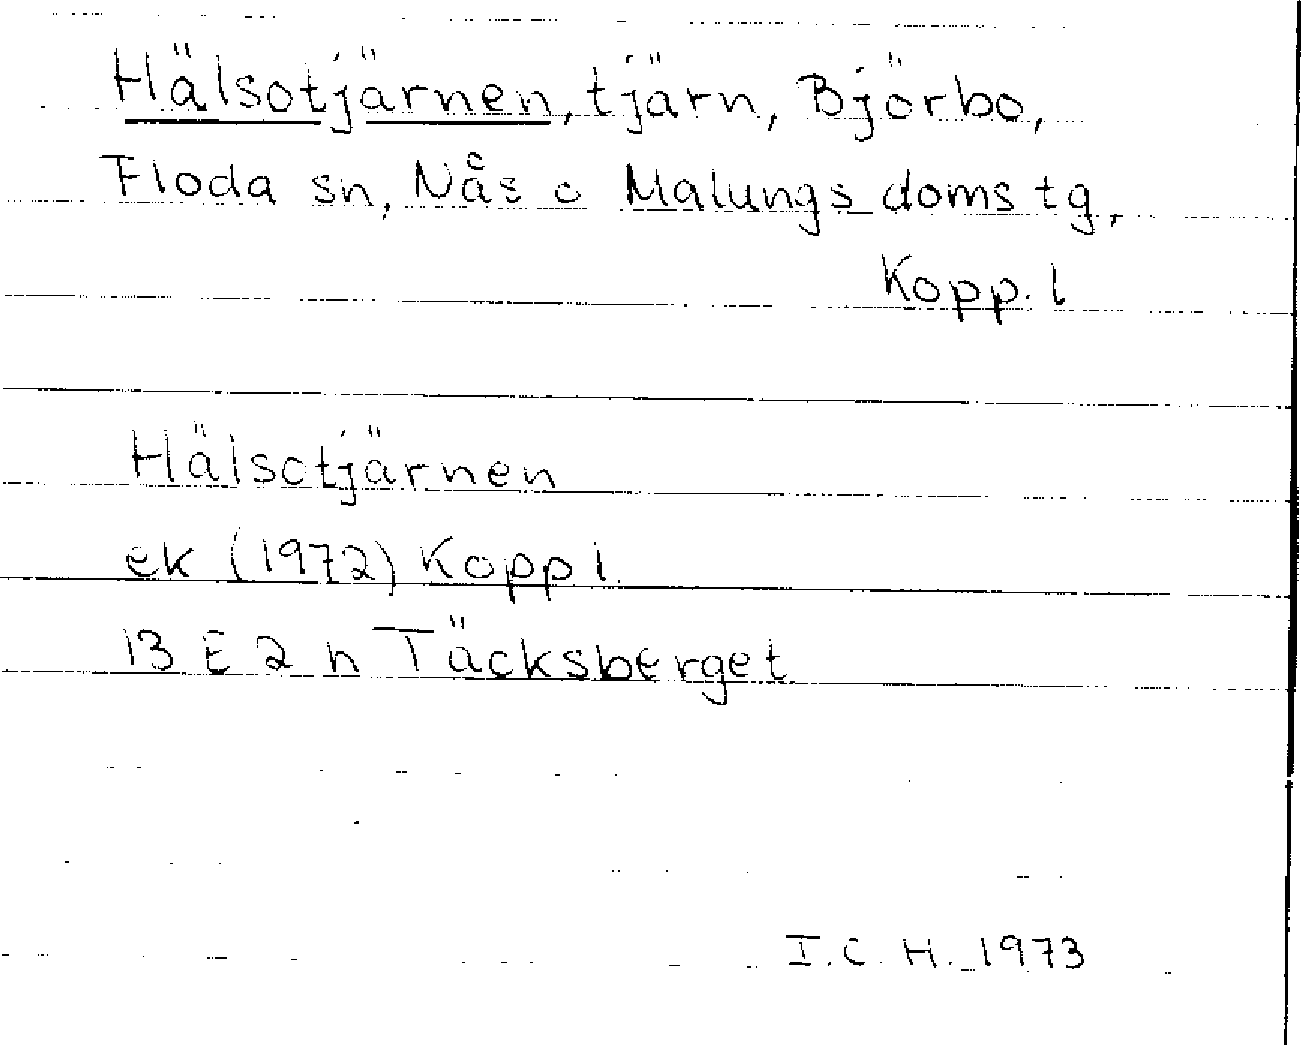 Hälsotjärnen, tjärn, Björbo,
Floda sn, Nås o Malungs domstg,
Kopp. l
Hälsotjärnen
ek (1972) Kopp l.
13 E 2 h Täcksberget
I. C. H. 1973